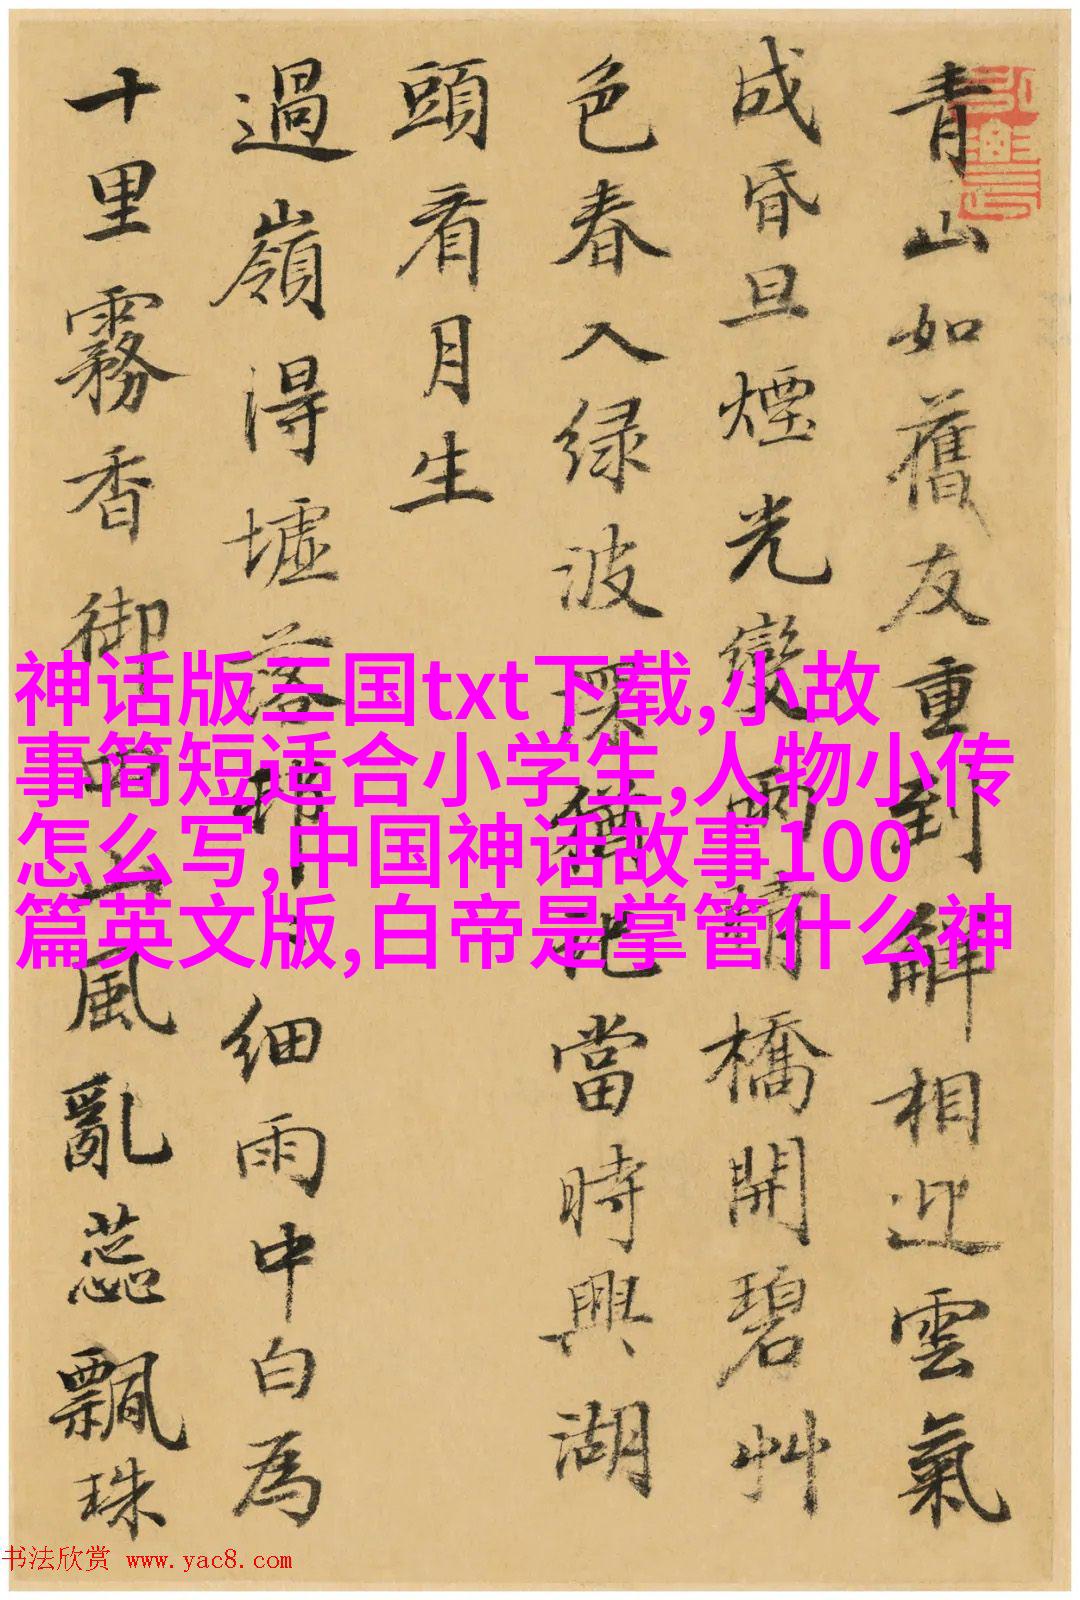 青山如舊友重到解相迎雲氣
成昏旦煙光變雨晴橋開碧艸
色春入绿波深猶此當時興湖
頭看月生
過嶺得墟落細雨中白為
十里霧香御風亂蕊飄珠
神话版三国txt下载,小故
事简短适合小学生,人物小传
怎么写,中国神话故事100
篇英文版,白帝是掌管什么神
书法欣赏 www.yac8.com